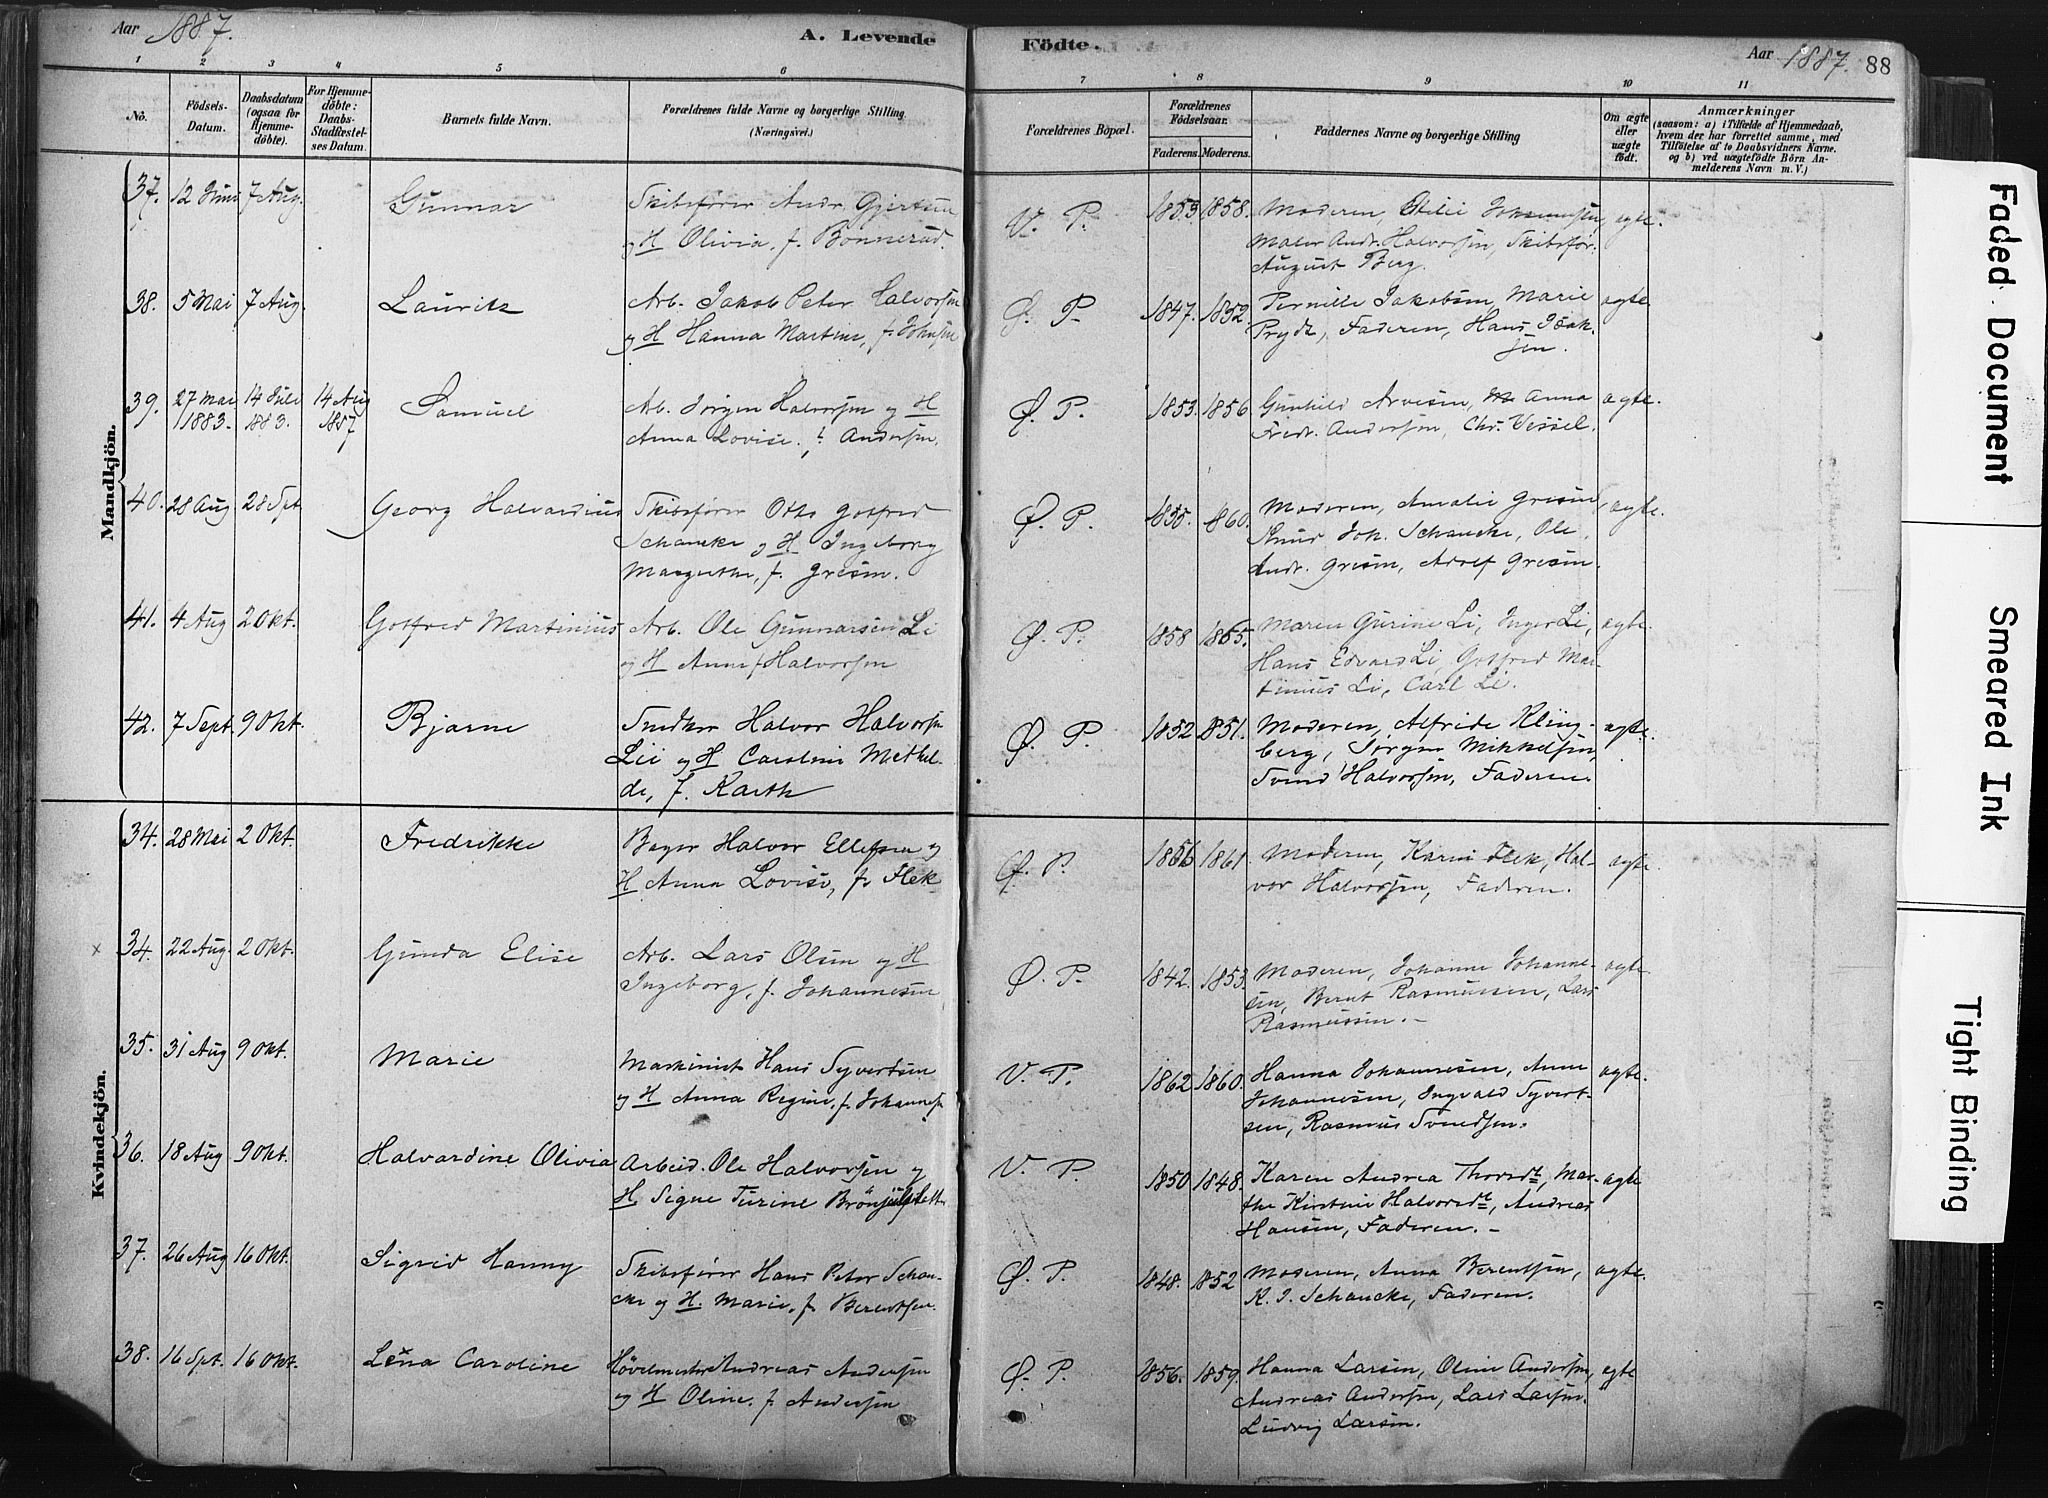 Aar 1887.
A. Levende Födte.
Aar 1887. 88
1 2 3 4 5 6 7 8 9 10 11
No.
Födsels-Datum.
Daabsdatum (ogsaa for Hjemme-döbte).
For Hjemme-döbte: Daabs-Stadfæstel-ses Datum.
Barnets fulde Navn.
Forældrenes fulde Navne og borgerlige Stilling.
(Næringsvei.)
Forældrenes Bopæl.
Forældrenes Födselsaar.
Faderens. Moderens.
Faddernes Navne og borgerlige Stilling
Om ægte eller uægte födt.
Anmærkninger
(saasom: a) i Tilfælde af Hjemmedaab,
hvem der har forrettet samme, med
Tilföielse af to Daabsvidners Navne.
og b) ved uægtefödte Börn An-
melderens Navn m. V.)
Mandkjön.
37. 12 Juni 7 Aug. Gunnar
Skibsfører Andr. Gjertsen
og H Olivia, f. Bonnerud.
V. P. 1853 1858.
Moderen, Otilie Johannessen, ægte.
Maler Andr. Halvorsen, Skibsfør.
August Berg.
38. 5 Mai 7 Aug. Lauritz
Arb. Jakob Peter Halvorsen
og H Hanna Martine, f. Johnsen
Ø. P. 1847. 1852.
Pernille Jakobsen, Marie ægte
Prydz, Faderen, Hans Isak-
sen.
39. 27 Mai 1883. 14 Juli 1883. 14 Aug 1887 Samuel
Arb. Jørgen Halvorsen og H
Anna Lovise. f. Andersen.
Ø. P. 1853. 1856
Gunhild Arvesen, Anna ægte.
Fredr. Andersen, Chr. Wessel.
40. 28 Aug 28 Spt Georg Halvardius
Skibsfører Otto Gotfred
Schancke og H Ingeborg
Margrethe, f. Gresen.
Ø. P. 1855. 1860.
Moderen, Amalie Gresen, ægte.
Knud Joh. Schancke, Ole
Andr. Gresen, Adolf Gresen.
41. 4 Aug 2 Okt. Gotfred Martinius
Arb. Ole Gunnarsen Li
og H Anne f. Halvorsen
Ø. P. 1858 1865.
Maren Gurine Li, Inger Li, ægte.
Hans Edvard Li, Gotfred Mar-
tinius Li, Carl Li.
42. 7 Sept. 9 Okt. Bjarne
Snedker Halvor Halvorsen
Lii og H Caroline Methel-
de, f. Rasth
Ø. P. 1852 1851.
Moderen, Alfride Kling- ægte.
berg, Jørgen Mikkelsen,
Svend Halvorsen, Faderen.
Kvindekjön.
34. 28 Mai 2 Okt. Fredrikke
Bager Halvor Ellefsen og
H Anna Lovise, f. Flek
Ø. P. 1856 1861
Moderen, Karen Flek, Hal- ægte.
vor Halvorsen, Faderen.
x 34. 22 Aug. 2 Okt. Gunda Elise
Arb. Lars Olsen og H
Ingeborg, f. Johannesen
Ø. P. 1842. 1853.
Moderen, Johanne Johanne- ægte
sen, Bernt Rasmussen, Lars
Rasmussen. -
35. 31 Aug 9 Okt. Marie
Maskinist Hans Syvertsen
og H Anna Regine, f. Johannesen
V. P. 1862 1860.
Hanna Johannesen, Anne ægte.
Johannesen, Ingvald Syvert-
sen, Rasmus Svendsen.
36. 18 Aug 9 Okt. Halvardine Olivia
Arbeid. Ole Halvorsen og
H Signe Turine
V. P. 1850 1848.
Karen Andrea Thorsdt, Mar- ægte
the Kirstine Halvorsdt, Andreas
Hansen, Faderen. -
37. 26 Aug 16 Okt. Sigrid Hanny
Skibsfører Hans Peter Schan-
cke og H. Marie, f. Berentsen.
Ø. P. 1848. 1852
Moderen, Anna Berentsen, ægte.
K. J. Schancke, Faderen.
38. 16 Spt. 16 Okt. Lena Caroline
Høvelmester Andreas Andersen
og H Oline. f. Andersen
Ø. P. 1856. 1859.
Hanna Larsen, Oline Andersen, ægte
Andreas Andersen, Lars Larsen.
Ludvig Larsen.
Faded Document
Smeared Ink
Tight Binding